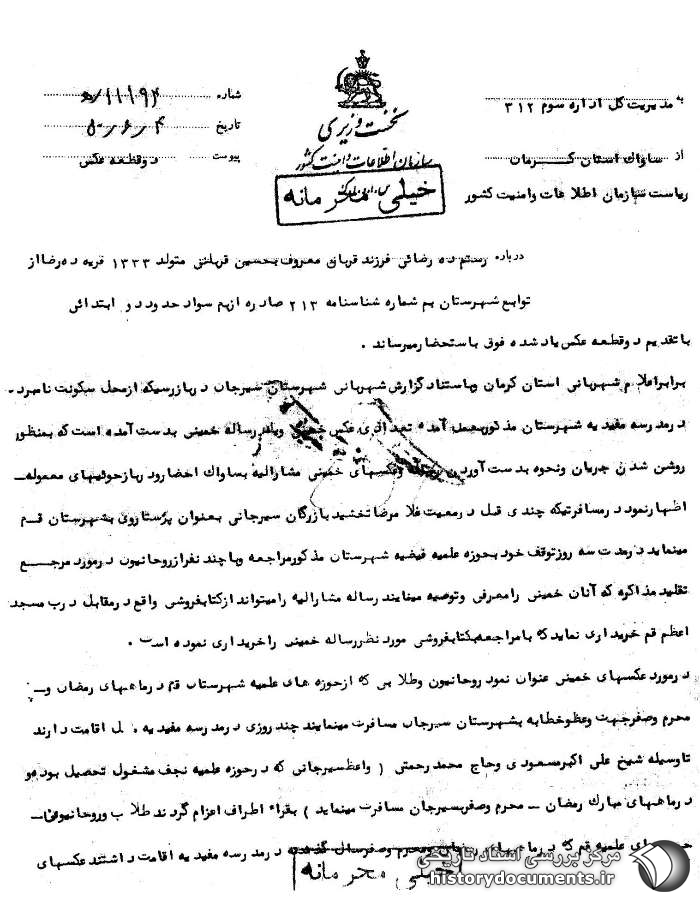 به مدیریت کل اداره سوم ۳۱۲
از ساواک استان کرمان
ریاست سازمان اطلاعات وامنیت کشور
نخست وزیری
سازمان اطلاعات وامنیت کشور
خیلی محرمانه
شماره
تاریخ
پیوست دوقطعه عکس
درباره رستم ده رضائی فرزند قربان معروف بحسین متولد ۱۳۳۳ قریه ده رضا از
توابع شهرستان بم شماره شناسنامه ۲۱۳ صادره ازبم سواد حدود دو ابتدائی
باتقدیم دوقطعه عکس یاد شده فوق باستحضار میرساند .
برابر اعلام شهربانی استان کرمان وباستناد گزارش شهربانی شهرستان سیرجان دربازرسیکه ازمحل سکونت نامبرده
درمدرسه مفیدیه شهرستان مذکور بعمل آمده تعدادی عکس خمینی رساله خمینی بدست آمده است که بمنظور
روشن شدن جریان ونحوه بدست آوردن وعکسهای خمینی مشارالیه بساواک احضار ودربازجوئیهای معموله
اظهارنمود درمسافرتیکه چندی قبل درمعیت غلامرضا بازرگان سیرجانی بعنوان پرستاروی بشهرستان قم
مینماید درمدت سه روزتوقف خود بحوزه علمیه فیضیه شهرستان مذکور مراجعه وبا چند نفر ازروحانیون درمورد مرجع
تقلید مذاکره که آنان خمینی رامعرفی وتوصیه مینمایند رساله مشارالیه رامیتواند ازکتابفروشی واقع درمقابل درب مسجد
اعظم قم خریداری نماید که بامراجعه بکتابفروشی مورد نظر رساله خمینی راخریداری نموده است .
درمورد عکسهای خمینی عنوان نمود روحانیون وطلابی که ازحوزه های علمیه شهرستان قم درماههای رمضان و
محرم وصفرجهت وعظ وخطابه بشهرستان سیرجان مسافرت مینمایند چند روزی درمدرسه مفیدیه اقامت دارند
تاوسیله شیخ علی اکبرمسعودی وحاج محمد رحمتی ( واعظ سیرجانی که درحوزه علمیه نجف مشغول تحصیل بوده و
درماههای مبارک رمضان - محرم وصفربسیرجان مسافرت مینماید ) بقراء اطراف اعزام گردند طلاب وروحانیون
های علمیه قم که درماههای ومحرم وصفرسال گذشته درمدرسه مفیدیه اقامت داشتند عکسهای
خیلی محرمانه
مرکز بررسی اسناد تاریخی
historydocuments.ir